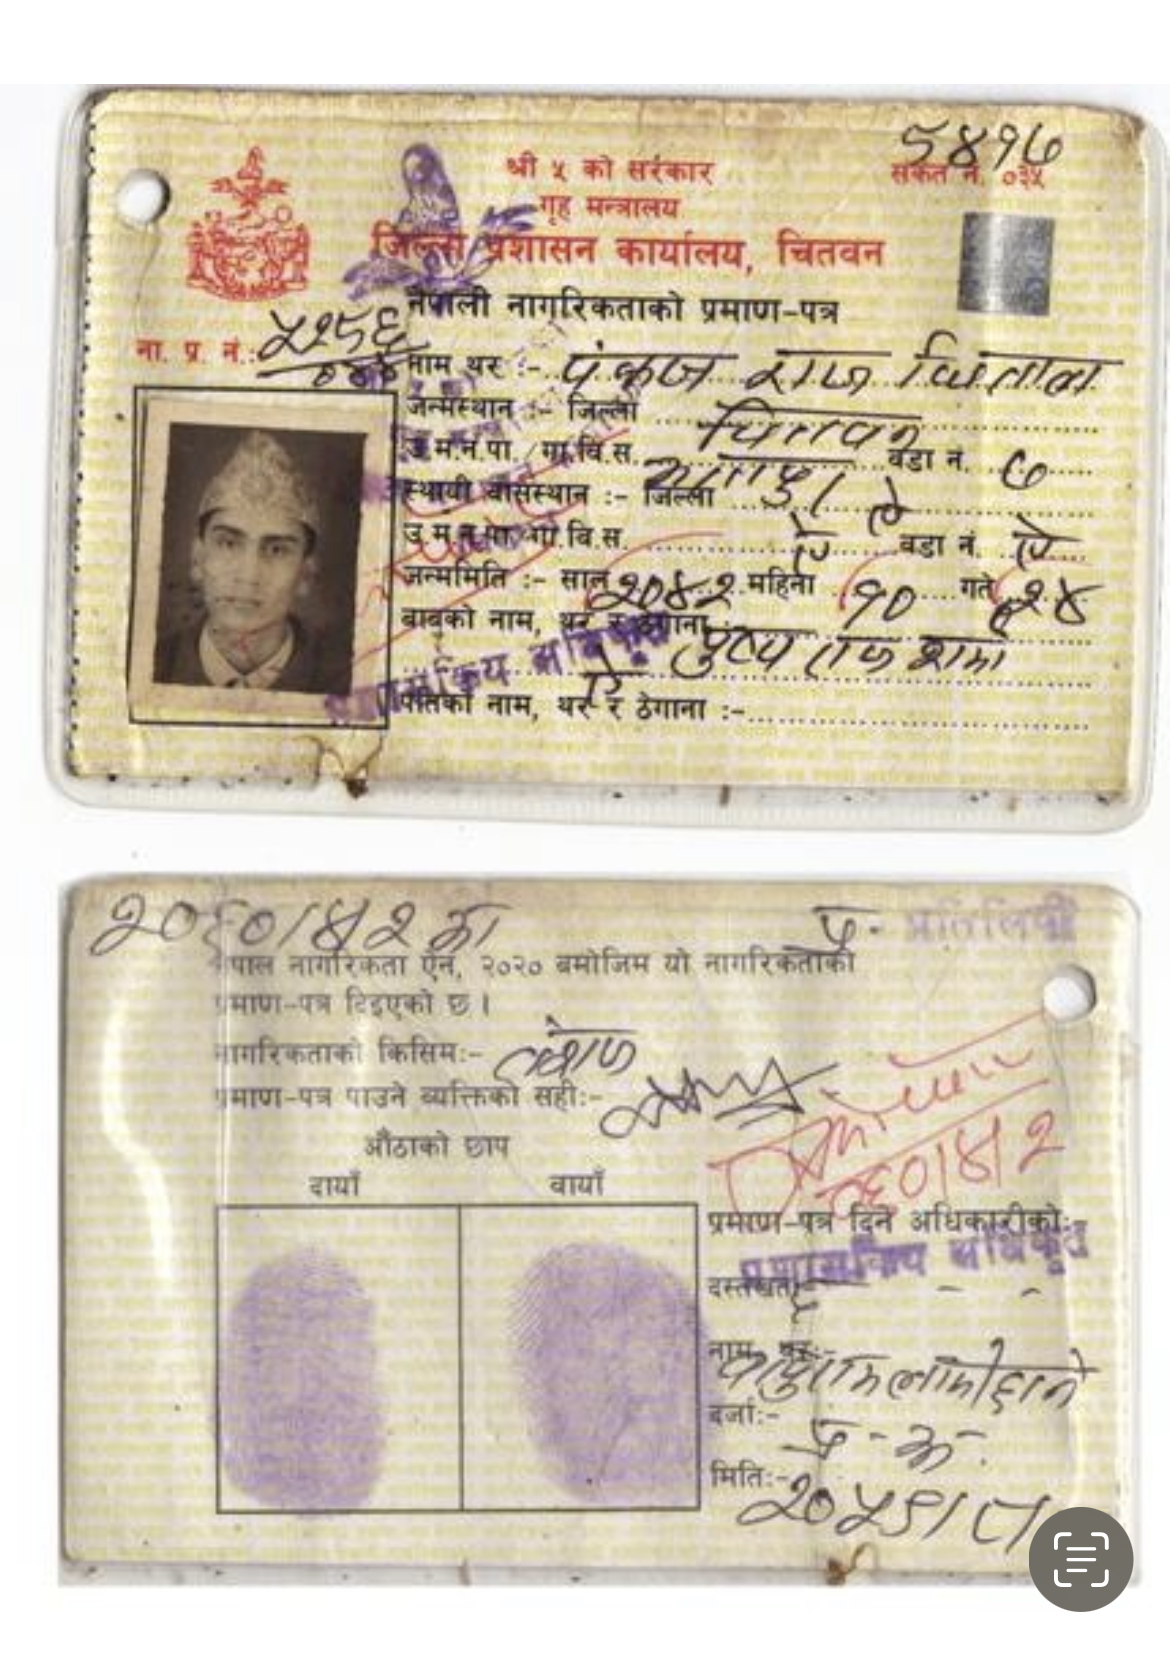 ५४१७
श्री ५ को सरकार
संकेत नं. ०३५
गृह मन्त्रालय
जिल्ला प्रशासन कार्यालय, चितवन
नेपाली नागरिकताको प्रमाण-पत्र
ना. प्र. नं.:
नाम थर :- पंकज राज
जन्मस्थान :- जिल्ला चितवन
उ.म.न.पा./गा.वि.स. वडा नं. ७
स्थायी वासस्थान :- जिल्ला ऐ
उ.म.न.पा./गा.वि.स. ऐ वडा नं. ऐ
जन्ममिति :- साल २०४२ महिना १० गते २४
बाबुको नाम, थर र ठेगाना पुष्प राज शर्मा
ऐ
पतिको नाम, थर र ठेगाना :-
प्रशासकिय अधिकृत
२०६०/४/२ का
प्र. प्रतिलिपी
नेपाल नागरिकता ऐन, २०२० बमोजिम यो नागरिकताको
प्रमाण-पत्र दिइएको छ ।
नागरिकताको किसिम:- वंशज
प्रमाण-पत्र पाउने व्यक्तिको सही:-
औंठाको छाप
दायाँ बायाँ
०६०/४/२
प्रमाण-पत्र दिने अधिकारीको:
प्रशासकिय अधिकृत
दस्तखत:-
नाम, थर:-
दर्जा:-
मिति:-